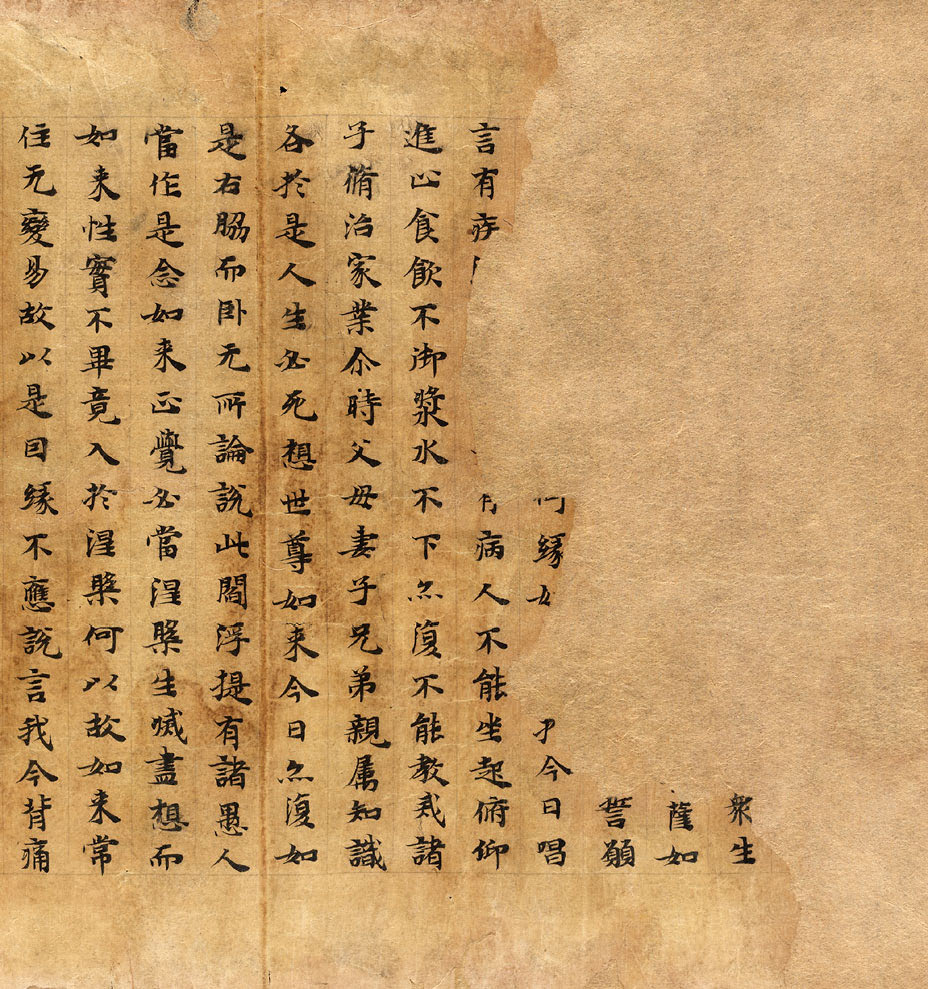 衆生
薩如
誓願
何縁 今日唱
言有疾 有病人不能坐起俯仰
進止食飲不御漿水不下亦復不能教戒諸
子脩治家業尒時父母妻子兄弟親属知識
各於是人生必死想世尊如来今日亦復如
是右脇而卧无所論說此閻浮提有諸愚人
當作是念如来正覺必當涅槃生烕盡想而
如来性實不畢竟入於涅槃何以故如来常
住无變易故以是因緣不應說言我今背痛